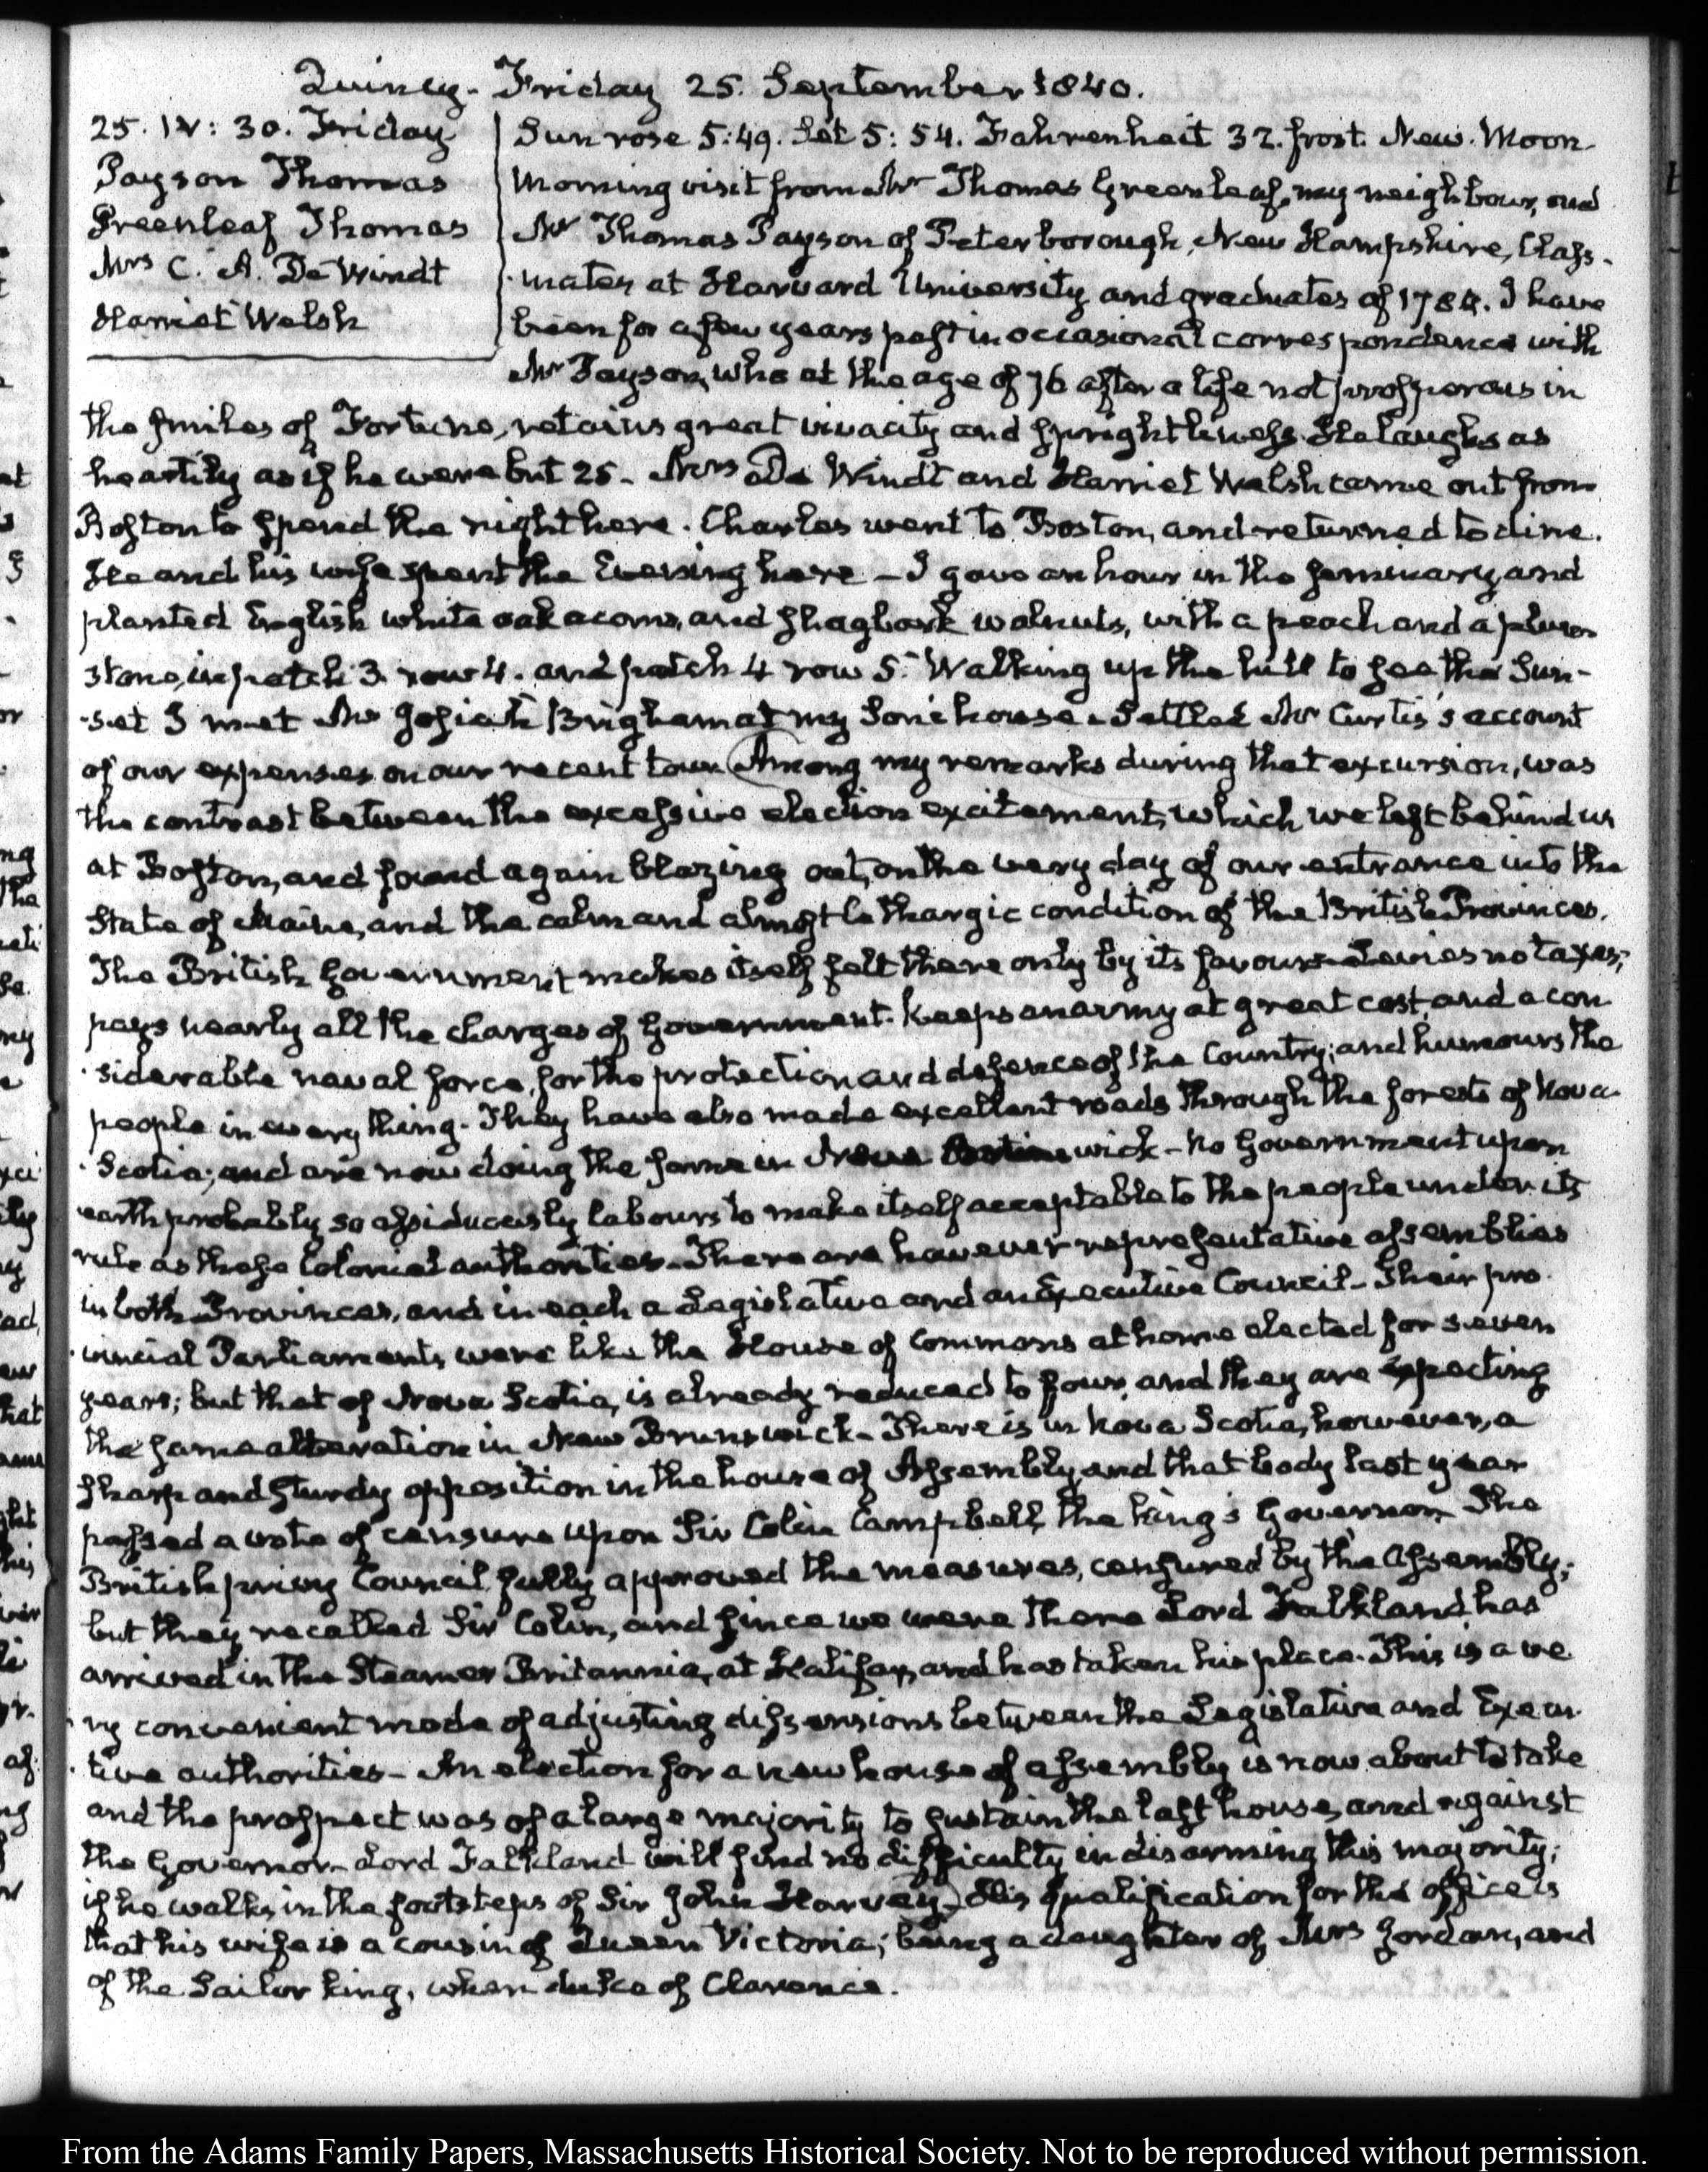 Quincy. Friday 25. September 1840.
25. IV: 30. Friday
Payson Thomas
Greenleaf Thomas
Mrs C. A. De Windt
Harriet Welsh
Sun rose 5:49. Set 5:54. Fahrenheit 32. frost. New. Moon
Morning visit from Mr Thomas Greenleaf, my neighbour, and
Mr Thomas Payson of Peterborough, New Hampshire, Class-
-mates at Harvard University and graduates of 1784. I have
been for a few years past in occasional correspondence with
Mr Payson, who at the age of 76 after a life not prosperous in
the smiles of Fortune, retains great vivacity and sprightliness. He laughs as
heartily as if he were but 25. Mrs De Windt and Harriet Welsh came out from
Boston to spend the night here. Charles went to Boston, and returned to dine.
He and his wife spent the Evening here – I gave an hour in the seminary and
planted English white oak acorns, and shagbark walnuts, with a peach and a plum
stone, in patch 3. row 4. and patch 4 row 5. Walking up the hill to see the Sun-
-set I met Mr Josiah Brigham at my Sons house. Settled Mr Curtis's account
of our expenses on our recent tour. Among my remarks during that excursion, was
the contrast between the excessive election excitement, which we left behind us
at Boston, and found again blazing out, on the very day of our entrance into the
State of Maine, and the calm and almost lethargic condition of the British Provinces.
The British Government makes itself felt there only by its favours – Levies no taxes;
pays nearly all the charges of Government. Keeps an army at great cost, and a con
-siderable naval force, for the protection and defence of the Country; and humours the
people in every thing. They have also made excellent roads through the forests of Nova
-Scotia; and are now doing the same in New wick – No Government upon
earth probably so assiduously labours to make itself acceptable to the people under its
rule as these Colonial authorities. There are however representative assemblies
in both Provinces, and in each a Legislative and an Executive Council – Their pro-
-vincial Parliaments were like the House of Commons at home elected for seven
years; but that of Nova Scotia, is already reduced to four, and they are expecting
the same alteration in New Brunswick – There is in Nova Scotia, however, a
sharp and sturdy opposition in the house of Assembly, and that body last year
passed a vote of censure upon Sir Colin Campbell, the king's Governor. The
British privy Council fully approved the measures, censured by the Assembly;
but they recalled Sir Colin, and since we were there Lord Falkland has
arrived in the Steamer Britannia, at Halifax, and has taken his place. This is a ve
-ry convenient mode of adjusting dissensions between the Legislative and Execu-
-tive authorities – An election for a new house of assembly is now about to take
and the prospect was of a large majority to sustain the last house, and against
the Governor. Lord Falkland will find no difficulty in disarming this majority;
if he walks in the footsteps of Sir John Harvey. His qualification for the office is
that his wife is a cousin of Queen Victoria; being a daughter of Mrs Jordan, and
of the Sailor king, when duke of Clarence.
From the Adams Family Papers, Massachusetts Historical Society. Not to be reproduced without permission.